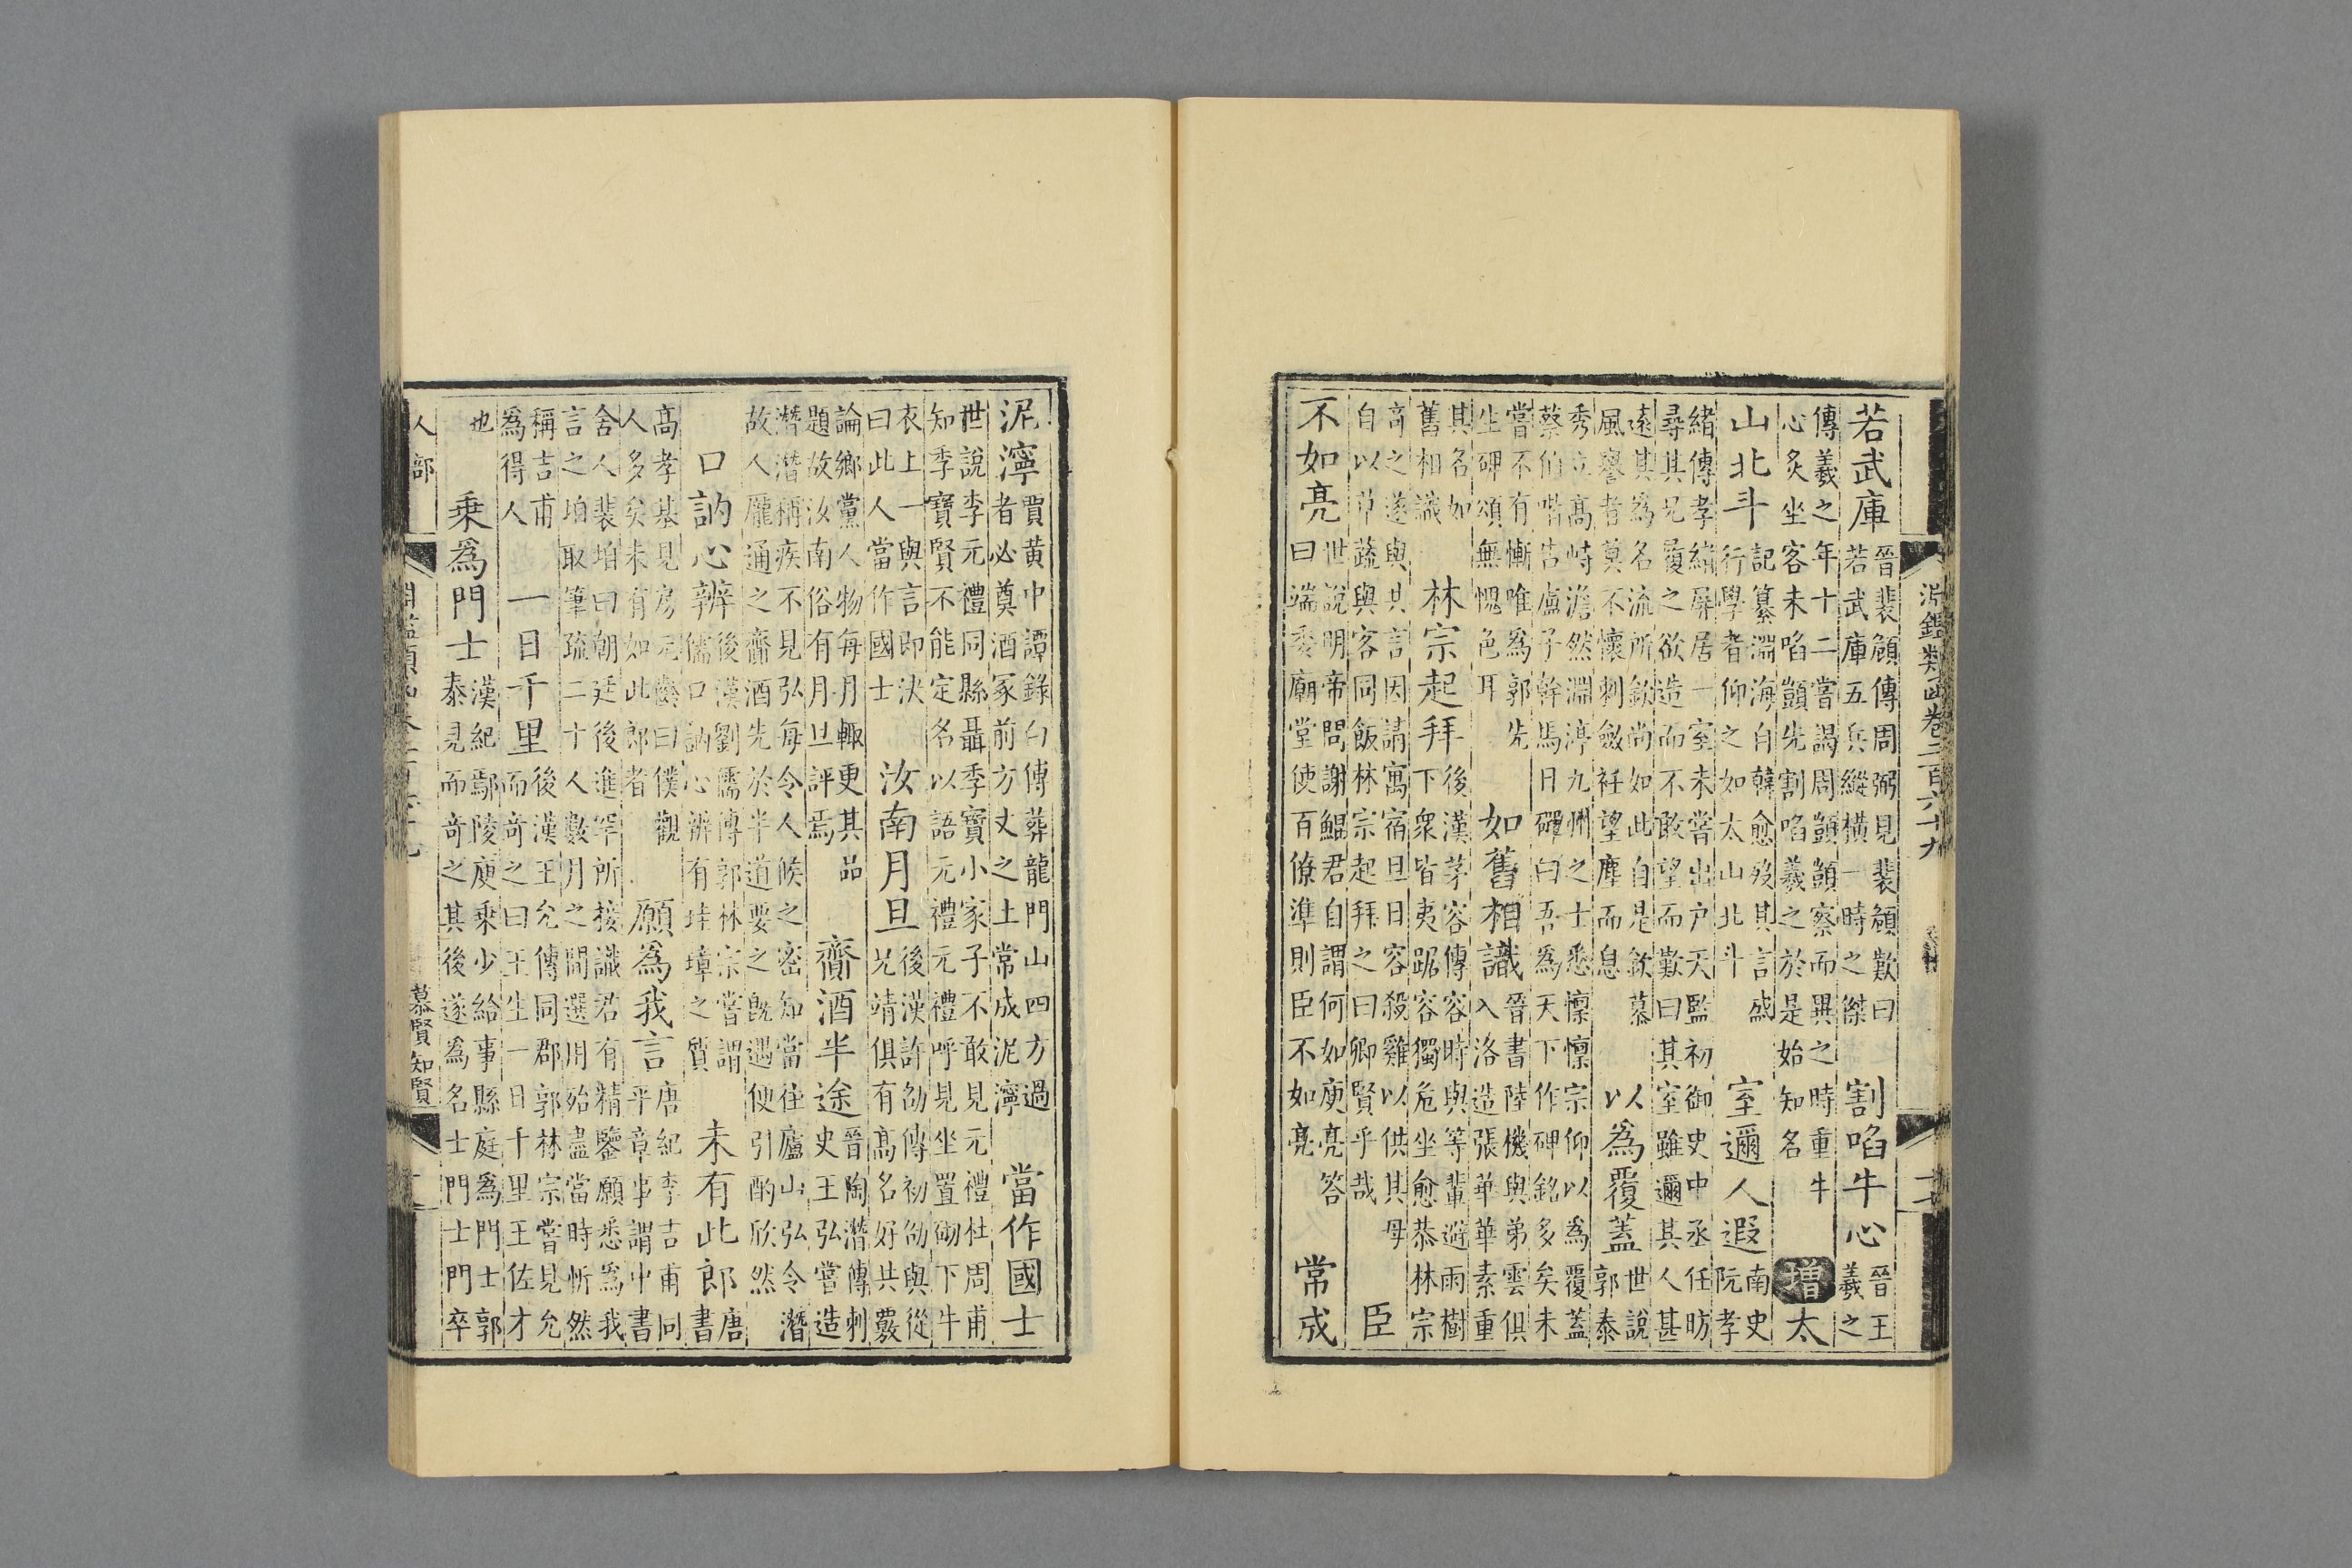 淵鑑類函卷二百六十九
若武庫晉裴頠傳周弼見裴頠歎曰若武庫五兵縱横一時之傑割㗖牛心晉王羲之
傳羲之年十二嘗謁周顗顗察而異之時重牛心炙坐客未㗖顗先割㗖羲之於是始知名增太
山北斗記纂淵海自韓愈歿其言盛行學者仰之如太山北斗室邇人遐南史阮孝
緒傳孝緒屏居一室未嘗出户天監初御史中丞任昉尋其兄履之欲造而不敢望而歎曰其室雖邇其人甚
遠其爲名流所欽尚如此自是欽慕風譽者莫不懷刺斂衽望塵而息以爲覆蓋世說郭泰
秀立髙峙澹然淵渟九州之士悉懍懍宗仰以爲覆蓋蔡伯喈告盧子幹馬日磾曰吾爲天下作碑銘多矣未
嘗不有慚唯爲郭先生碑頌無愧色耳如舊相識晉書陸機與弟雲俱入洛造張華華素重
其名如舊相識林宗起拜後漢茅容傳容時與等輩避雨樹下衆皆夷踞容獨危坐愈恭林宗
奇之遂與共言因請寓宿旦日容殺雞以供其母自以草蔬與客同飯林宗起拜之曰卿賢乎哉臣
不如亮世說明帝問謝鯤君自謂何如庾亮答曰端委廟堂使百僚準則臣不如亮常成
泥濘賈黄中譚錄白傅葬龍門山四方過者必奠酒冢前方丈之土常成泥濘當作國士
世說李元禮同縣聶季寶小家子不敢見元禮杜周甫知季寶賢不能定名以語元禮元禮呼見坐置砌下牛
衣上一與言即決曰此人當作國士汝南月旦後漢許劭傳初劭與從兄靖俱有髙名好共覈
論鄉黨人物每月輙更其品題故汝南俗有月旦評焉齎酒半途晉陶潛傳刺史王弘嘗造
潛潛稱疾不見弘每令人候之密知當往廬山弘令潛故人龎通之齎酒先於半道要之既遇便引酌欣然
口訥心辨後漢劉儒傳郭林宗嘗謂儒口訥心辨有珪璋之質未有此郎唐書
髙孝基見房元齡曰僕觀人多矣未有如此郎者願爲我言唐紀李吉甫同平章事謂中書
舍人裴垍曰朝廷後進罕所接識君有精鑒願悉爲我言之垍取筆疏二十人數月之間選用殆盡當時忻然
稱吉甫爲得人一日千里後漢王允傳同郡郭林宗嘗見允而奇之曰王生一日千里王佐才
也乗爲門士漢紀鄢陵庾乗少給事縣庭爲門士郭泰見而奇之其後遂爲名士門士門卒
人部 慕賢知賢